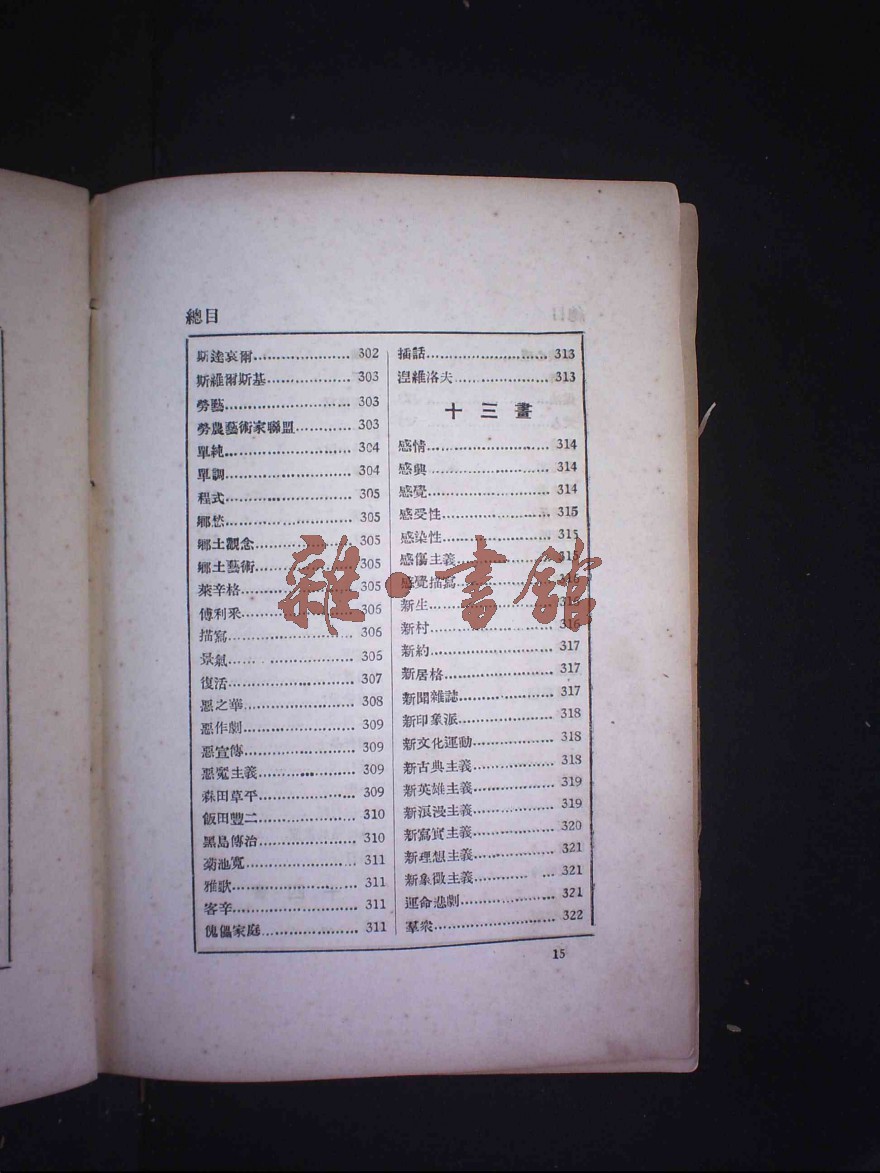 總目
斯達哀爾 302
斯維爾斯基 303
勞藝 303
勞農藝術家聯盟 303
單純 304
單調 304
程式 305
鄉愁 305
鄉土觀念 305
鄉土藝術 305
萊辛格 305
傅利采 306
描寫 306
景氣 306
復活 307
惡之華 308
惡作劇 309
惡宣傳 309
惡魔主義 309
森田草平 309
飯田豐二 310
黑島傳治 310
菊池寬 311
雅歌 311
客辛 311
傀儡家庭 311
插話 313
湼維洛夫 313
十三畫
感情 314
感興 314
感覺 314
感受性 315
感染性 315
感傷主義 315
感覺描寫
新生
新村 316
新約 317
新居格 317
新聞雜誌 317
新印象派 318
新文化運動 318
新古典主義 318
新英雄主義 319
新浪漫主義 319
新寫實主義 320
新理想主義 321
新象徵主義 321
運命悲劇 321
羣衆 322
15
雜·書館